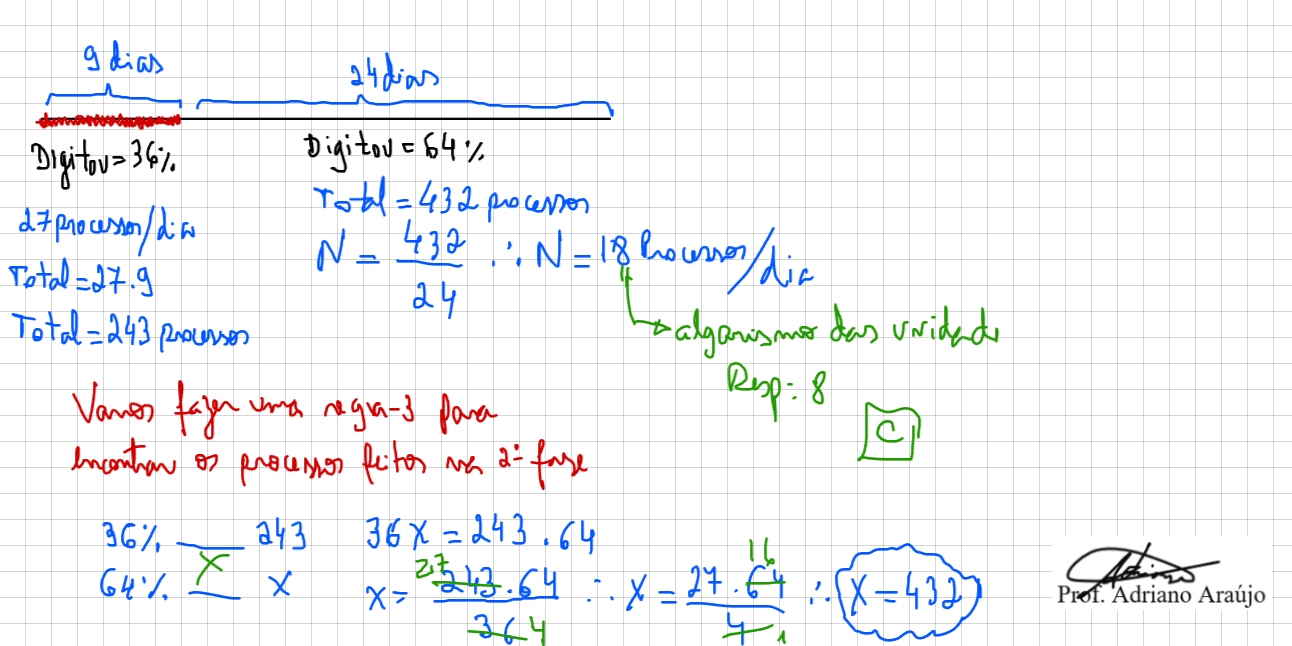 9 dias 24 dias
Digitou = 36% Digitou = 64%
Total = 432 processos
27 processos/dia
N = 432/24 ∴ N = 18 Processos/dia
Total = 27.9
Total = 243 processos
algarismo das unidade
Resp: 8
C
Vamos fazer uma regra-3 para
encontrar os processos feitos na 2ª fase
36% 243 36X = 243.64
64% X X = 243.64/36 27 4 ∴ X = 27.64/4 16 1 ∴ X = 432
X
Prof. Adriano Araújo